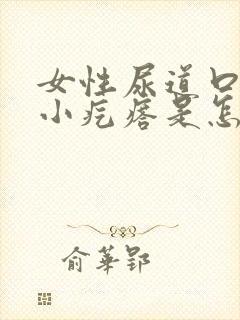 女性尿道口
小疙瘩是怎
俞华郢